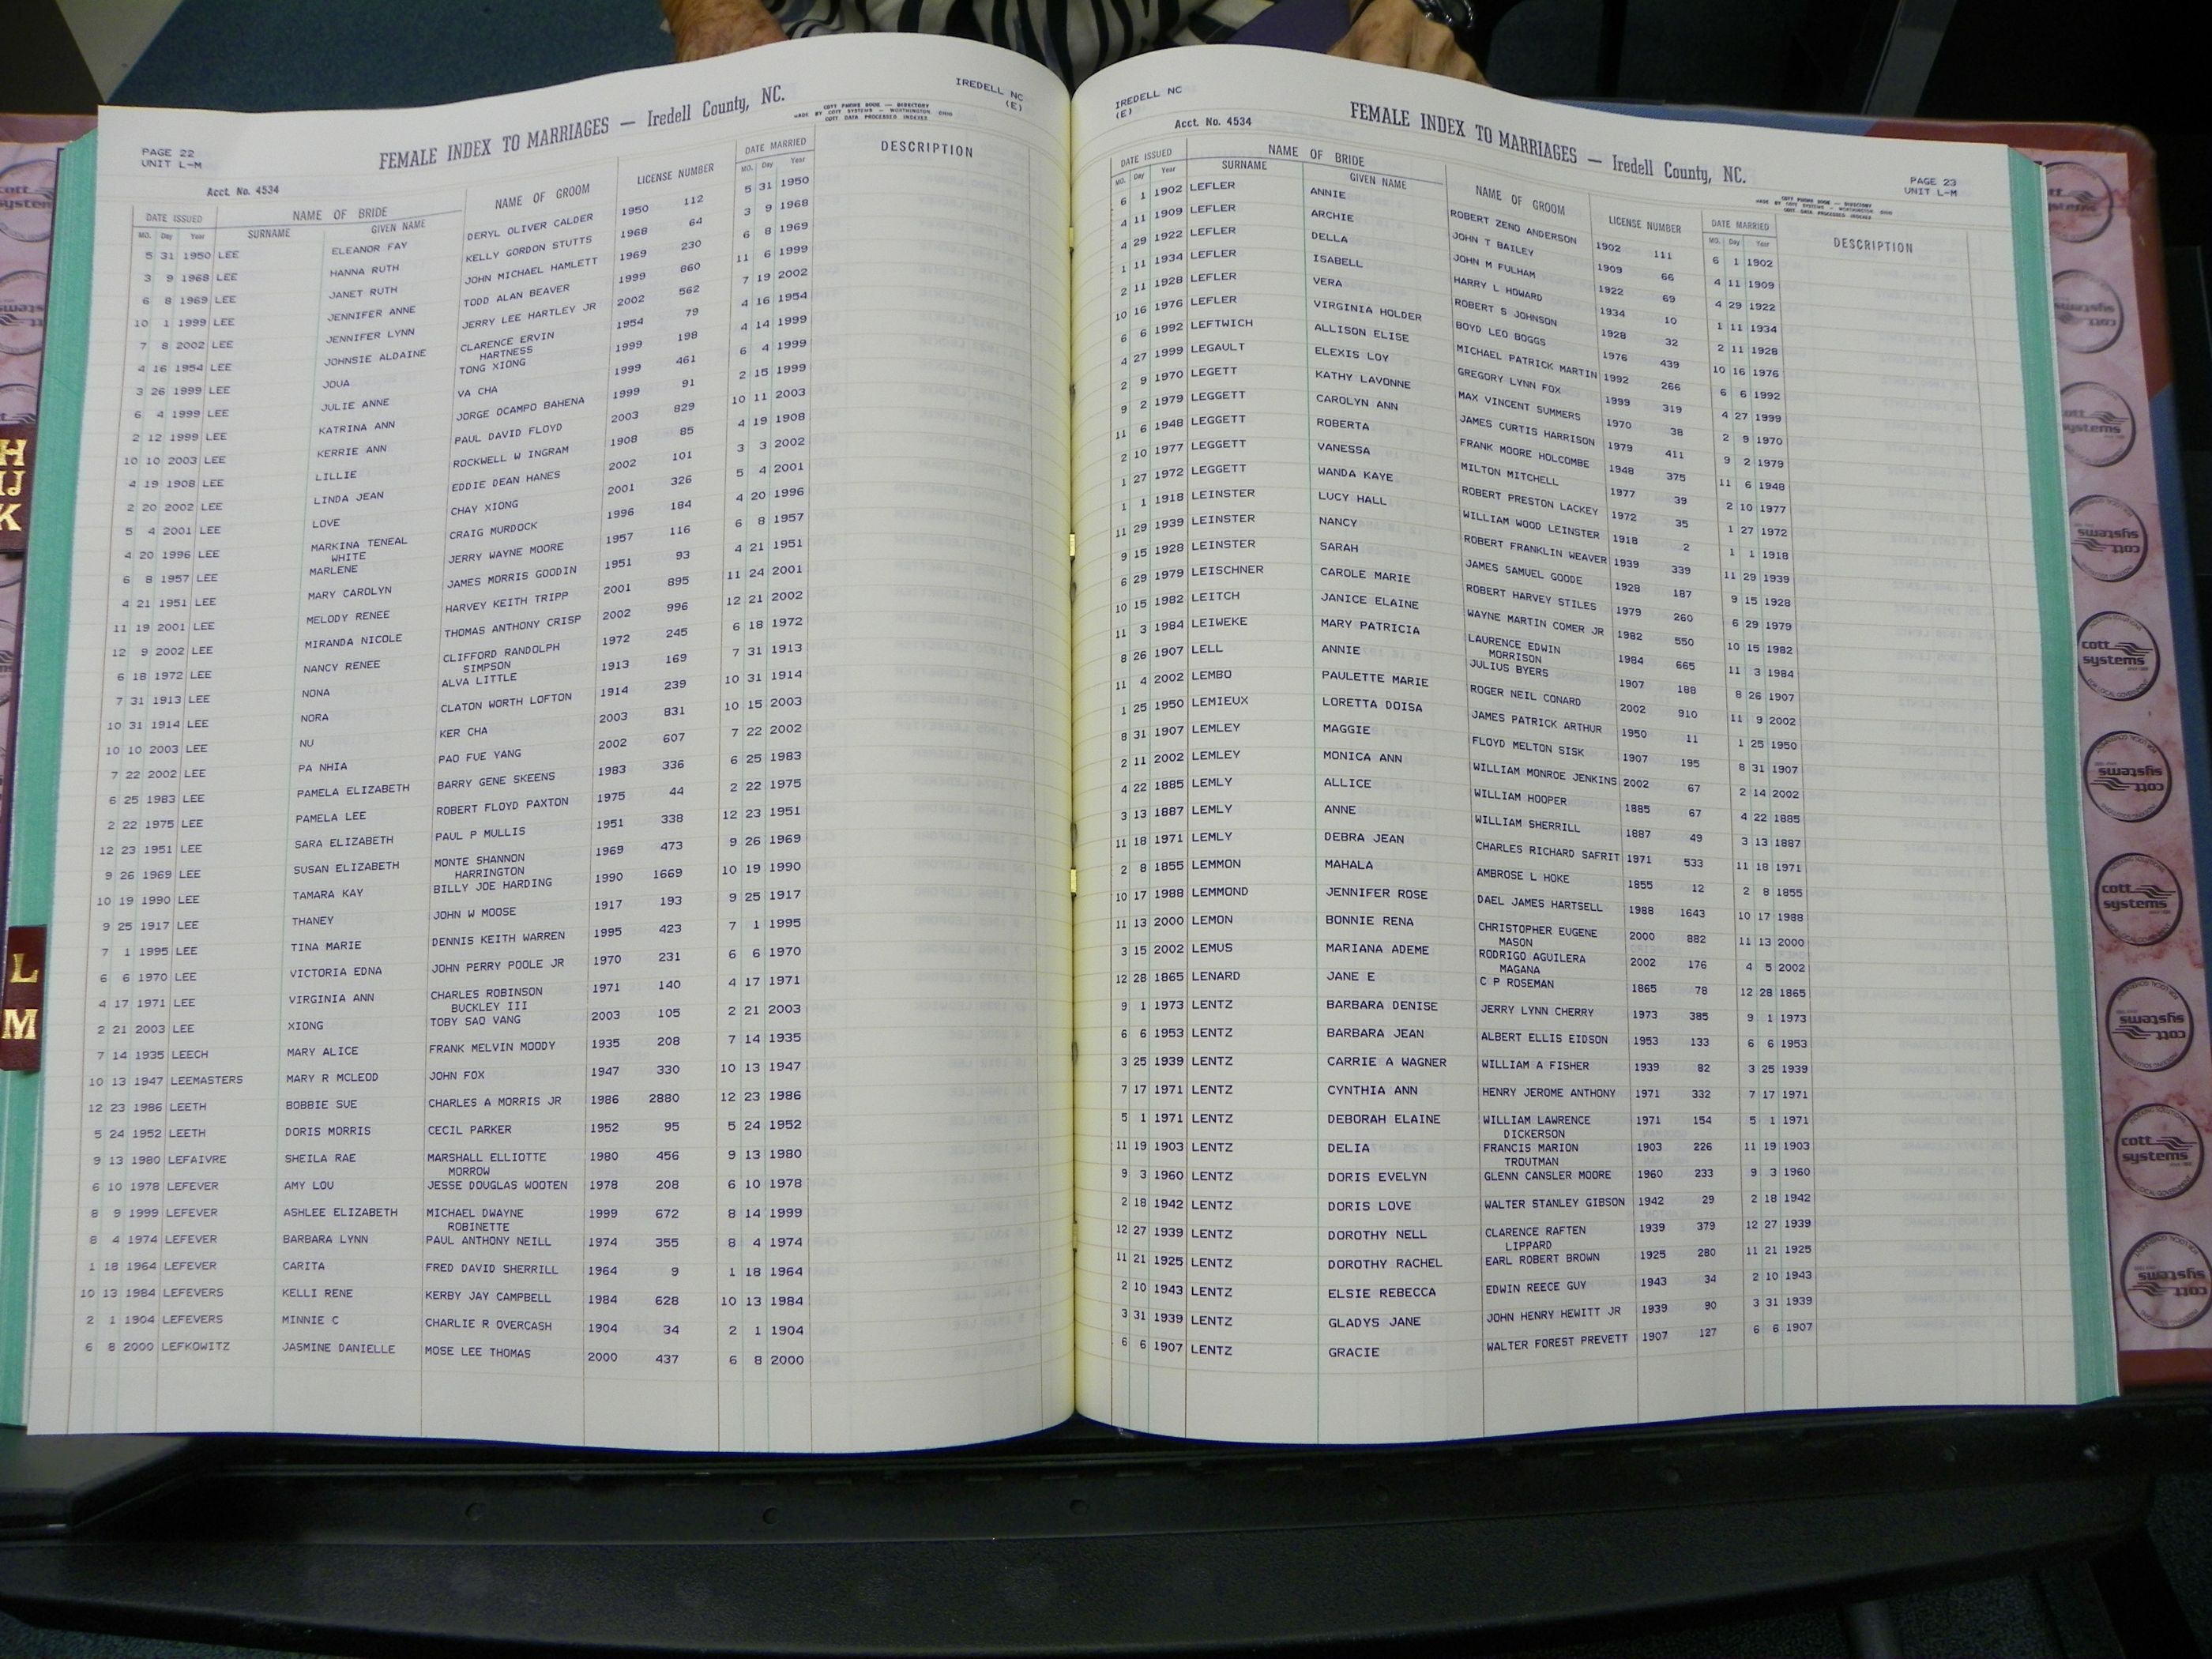 IREDELL NC
(E)
FEMALE INDEX TO MARRIAGES — Iredell County, NC.
COTT PHONE BOOK — DIRECTORY
MADE BY COTT SYSTEMS — WORTHINGTON OHIO
COTT DATA PROCESSED INDEXES
PAGE 22
UNIT L-M
Acct. No. 4534
DATE ISSUED NAME OF BRIDE NAME OF GROOM LICENSE NUMBER DATE MARRIED DESCRIPTION
MO. Day Year SURNAME GIVEN NAME MO. Day Year
5 31 1950 LEE ELEANOR FAY DERYL OLIVER CALDER 1950 112 5 31 1950
3 9 1968 LEE HANNA RUTH KELLY GORDON STUTTS 1968 64 3 9 1968
6 8 1969 LEE JANET RUTH JOHN MICHAEL HAMLETT 1969 230 6 8 1969
10 1 1999 LEE JENNIFER ANNE TODD ALAN BEAVER 1999 860 11 6 1999
7 8 2002 LEE JENNIFER LYNN JERRY LEE HARTLEY JR 2002 562 7 19 2002
4 16 1954 LEE JOHNSIE ALDAINE CLARENCE ERVIN 1954 79 4 16 1954
HARTNESS
3 26 1999 LEE JOUA TONG XIONG 1999 198 4 14 1999
6 4 1999 LEE JULIE ANNE VA CHA 1999 461 6 4 1999
2 12 1999 LEE KATRINA ANN JORGE OCAMPO BAHENA 1999 91 2 15 1999
10 10 2003 LEE KERRIE ANN PAUL DAVID FLOYD 2003 829 10 11 2003
4 19 1908 LEE LILLIE ROCKWELL W INGRAM 1908 85 4 19 1908
2 20 2002 LEE LINDA JEAN EDDIE DEAN HANES 2002 101 3 3 2002
5 4 2001 LEE LOVE CHAY XIONG 2001 326 5 4 2001
4 20 1996 LEE MARKINA TENEAL CRAIG MURDOCK 1996 184 4 20 1996
WHITE
6 8 1957 LEE MARLENE JERRY WAYNE MOORE 1957 116 6 8 1957
4 21 1951 LEE MARY CAROLYN JAMES MORRIS GOODIN 1951 93 4 21 1951
11 19 2001 LEE MELODY RENEE HARVEY KEITH TRIPP 2001 895 11 24 2001
12 9 2002 LEE MIRANDA NICOLE THOMAS ANTHONY CRISP 2002 996 12 21 2002
6 18 1972 LEE NANCY RENEE CLIFFORD RANDOLPH 1972 245 6 18 1972
SIMPSON
7 31 1913 LEE NONA ALVA LITTLE 1913 169 7 31 1913
10 31 1914 LEE NORA CLATON WORTH LOFTON 1914 239 10 31 1914
10 10 2003 LEE NU KER CHA 2003 831 10 15 2003
7 22 2002 LEE PA NHIA PAO FUE YANG 2002 607 7 22 2002
6 25 1983 LEE PAMELA ELIZABETH BARRY GENE SKEENS 1983 336 6 25 1983
2 22 1975 LEE PAMELA LEE ROBERT FLOYD PAXTON 1975 44 2 22 1975
12 23 1951 LEE SARA ELIZABETH PAUL P MULLIS 1951 338 12 23 1951
9 26 1969 LEE SUSAN ELIZABETH MONTE SHANNON 1969 473 9 26 1969
HARRINGTON
10 19 1990 LEE TAMARA KAY BILLY JOE HARDING 1990 1669 10 19 1990
9 25 1917 LEE THANEY JOHN W MOOSE 1917 193 9 25 1917
7 1 1995 LEE TINA MARIE DENNIS KEITH WARREN 1995 423 7 1 1995
6 6 1970 LEE VICTORIA EDNA JOHN PERRY POOLE JR 1970 231 6 6 1970
4 17 1971 LEE VIRGINIA ANN CHARLES ROBINSON 1971 140 4 17 1971
BUCKLEY III
2 21 2003 LEE XIONG TOBY SAO VANG 2003 105 2 21 2003
7 14 1935 LEECH MARY ALICE FRANK MELVIN MOODY 1935 208 7 14 1935
10 13 1947 LEEMASTERS MARY R MCLEOD JOHN FOX 1947 330 10 13 1947
12 23 1986 LEETH BOBBIE SUE CHARLES A MORRIS JR 1986 2880 12 23 1986
5 24 1952 LEETH DORIS MORRIS CECIL PARKER 1952 95 5 24 1952
9 13 1980 LEFAIVRE SHEILA RAE MARSHALL ELLIOTTE 1980 456 9 13 1980
MORROW
6 10 1978 LEFEVER AMY LOU JESSE DOUGLAS WOOTEN 1978 208 6 10 1978
8 9 1999 LEFEVER ASHLEE ELIZABETH MICHAEL DWAYNE 1999 672 8 14 1999
ROBINETTE
8 4 1974 LEFEVER BARBARA LYNN PAUL ANTHONY NEILL 1974 355 8 4 1974
1 18 1964 LEFEVER CARITA FRED DAVID SHERRILL 1964 9 1 18 1964
10 13 1984 LEFEVERS KELLI RENE KERBY JAY CAMPBELL 1984 628 10 13 1984
2 1 1904 LEFEVERS MINNIE C CHARLIE R OVERCASH 1904 34 2 1 1904
6 8 2000 LEFKOWITZ JASMINE DANIELLE MOSE LEE THOMAS 2000 437 6 8 2000
IREDELL NC
(E)
Acct. No. 4534
FEMALE INDEX TO MARRIAGES — Iredell County, NC.
COTT PHONE BOOK — DIRECTORY
MADE BY COTT SYSTEMS — WORTHINGTON OHIO
COTT DATA PROCESSED INDEXES
PAGE 23
UNIT L-M
DATE ISSUED NAME OF BRIDE NAME OF GROOM LICENSE NUMBER DATE MARRIED DESCRIPTION
MO. Day Year SURNAME GIVEN NAME MO. Day Year
6 1 1902 LEFLER ANNIE ROBERT ZENO ANDERSON 1902 111 6 1 1902
4 11 1909 LEFLER ARCHIE JOHN T BAILEY 1909 66 4 11 1909
4 29 1922 LEFLER DELLA JOHN M FULHAM 1922 69 4 29 1922
1 11 1934 LEFLER ISABELL HARRY L HOWARD 1934 10 1 11 1934
2 11 1928 LEFLER VERA ROBERT S JOHNSON 1928 32 2 11 1928
10 16 1976 LEFLER VIRGINIA HOLDER BOYD LEO BOGGS 1976 439 10 16 1976
6 6 1992 LEFTWICH ALLISON ELISE MICHAEL PATRICK MARTIN 1992 266 6 6 1992
4 27 1999 LEGAULT ELEXIS LOY GREGORY LYNN FOX 1999 319 4 27 1999
2 9 1970 LEGETT KATHY LAVONNE MAX VINCENT SUMMERS 1970 38 2 9 1970
9 2 1979 LEGGETT CAROLYN ANN JAMES CURTIS HARRISON 1979 411 9 2 1979
11 6 1948 LEGGETT ROBERTA FRANK MOORE HOLCOMBE 1948 375 11 6 1948
2 10 1977 LEGGETT VANESSA MILTON MITCHELL 1977 39 2 10 1977
1 27 1972 LEGGETT WANDA KAYE ROBERT PRESTON LACKEY 1972 35 1 27 1972
1 1 1918 LEINSTER LUCY HALL WILLIAM WOOD LEINSTER 1918 2 1 1 1918
11 29 1939 LEINSTER NANCY ROBERT FRANKLIN WEAVER 1939 339 11 29 1939
9 15 1928 LEINSTER SARAH JAMES SAMUEL GOODE 1928 187 9 15 1928
6 29 1979 LEISCHNER CAROLE MARIE ROBERT HARVEY STILES 1979 260 6 29 1979
10 15 1982 LEITCH JANICE ELAINE WAYNE MARTIN COMER JR 1982 550 10 15 1982
11 3 1984 LEIWEKE MARY PATRICIA LAURENCE EDWIN 1984 665 11 3 1984
MORRISON
8 26 1907 LELL ANNIE JULIUS BYERS 1907 188 8 26 1907
11 4 2002 LEMBO PAULETTE MARIE ROGER NEIL CONARD 2002 910 11 9 2002
1 25 1950 LEMIEUX LORETTA DOISA JAMES PATRICK ARTHUR 1950 11 1 25 1950
8 31 1907 LEMLEY MAGGIE FLOYD MELTON SISK 1907 195 8 31 1907
2 11 2002 LEMLEY MONICA ANN WILLIAM MONROE JENKINS 2002 67 2 14 2002
4 22 1885 LEMLY ALLICE WILLIAM HOOPER 1885 67 4 22 1885
3 13 1887 LEMLY ANNE WILLIAM SHERRILL 1887 49 3 13 1887
11 18 1971 LEMLY DEBRA JEAN CHARLES RICHARD SAFRIT 1971 533 11 18 1971
2 8 1855 LEMMON MAHALA AMBROSE L HOKE 1855 12 2 8 1855
10 17 1988 LEMMOND JENNIFER ROSE DAEL JAMES HARTSELL 1988 1643 10 17 1988
11 13 2000 LEMON BONNIE RENA CHRISTOPHER EUGENE 2000 882 11 13 2000
MASON
3 15 2002 LEMUS MARIANA ADEME RODRIGO AGUILERA 2002 176 4 5 2002
MAGANA
12 28 1865 LENARD JANE E C P ROSEMAN 1865 78 12 28 1865
9 1 1973 LENTZ BARBARA DENISE JERRY LYNN CHERRY 1973 385 9 1 1973
6 6 1953 LENTZ BARBARA JEAN ALBERT ELLIS EIDSON 1953 133 6 6 1953
3 25 1939 LENTZ CARRIE A WAGNER WILLIAM A FISHER 1939 82 3 25 1939
7 17 1971 LENTZ CYNTHIA ANN HENRY JEROME ANTHONY 1971 332 7 17 1971
5 1 1971 LENTZ DEBORAH ELAINE WILLIAM LAWRENCE 1971 154 5 1 1971
DICKERSON
11 19 1903 LENTZ DELIA FRANCIS MARION 1903 226 11 19 1903
TROUTMAN
9 3 1960 LENTZ DORIS EVELYN GLENN CANSLER MOORE 1960 233 9 3 1960
2 18 1942 LENTZ DORIS LOVE WALTER STANLEY GIBSON 1942 29 2 18 1942
12 27 1939 LENTZ DOROTHY NELL CLARENCE RAFTEN 1939 379 12 27 1939
LIPPARD
11 21 1925 LENTZ DOROTHY RACHEL EARL ROBERT BROWN 1925 280 11 21 1925
2 10 1943 LENTZ ELSIE REBECCA EDWIN REECE GUY 1943 34 2 10 1943
3 31 1939 LENTZ GLADYS JANE JOHN HENRY HEWITT JR 1939 90 3 31 1939
6 6 1907 LENTZ GRACIE WALTER FOREST PREVETT 1907 127 6 6 1907
H
IJ
K
L
M
cott
systems
cott
systems
cott
systems